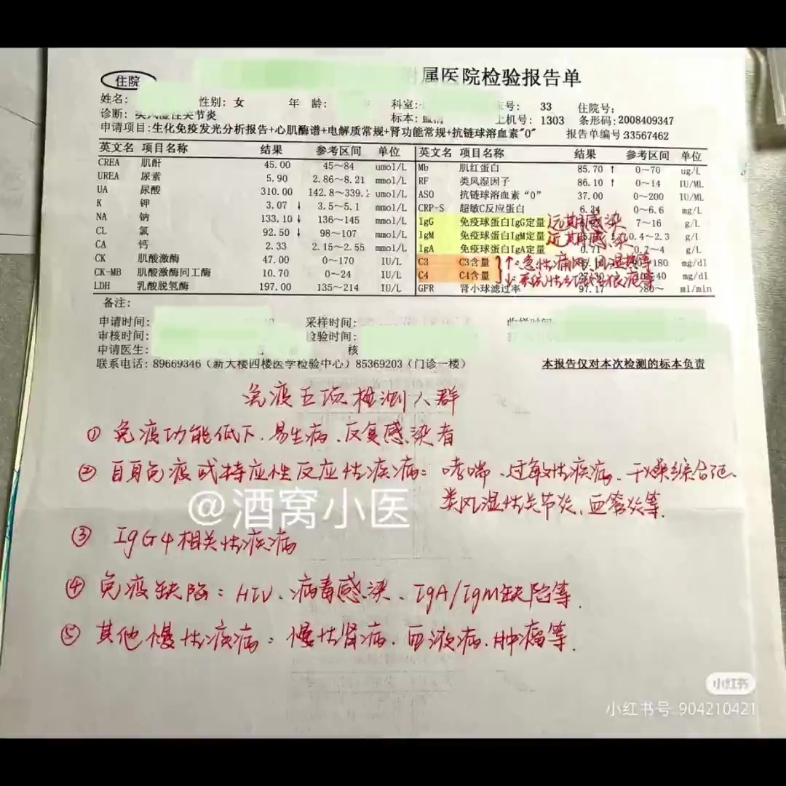 住院
附属医院检验报告单
姓名: 性别: 女 年 龄: 科室: 号: 33 住院号:
诊断: 类风湿性关节炎 标本: 血清 上机号: 1303 条形码: 2008409347
申请项目: 生化免疫发光分析报告+心肌酶谱+电解质常规+肾功能常规+抗链球溶血素"0" 报告单编号: 33567462
英文名 项目名称 结果 参考区间 单位
CREA 肌酐 45.00 45~84 umol/L
UREA 尿素 5.90 2.86~8.21 mmol/L
UA 尿酸 310.00 142.8~339.2 umol/L
K 钾 3.07 ↓ 3.5~5.1 mmol/L
NA 钠 133.10 ↓ 136~145 mmol/L
CL 氯 92.50 ↓ 98~107 mmol/L
CA 钙 2.33 2.15~2.55 mmol/L
CK 肌酸激酶 47.00 0~170 IU/L
CK-MB 肌酸激酶同工酶 10.70 0~24 IU/L
LDH 乳酸脱氢酶 197.00 135~214 IU/L
英文名 项目名称 结果 参考区间 单位
Mb 肌红蛋白 85.70 ↑ 0~70 ug/L
RF 类风湿因子 86.10 ↑ 0~14 IU/ML
ASO 抗链球溶血素"0" 37.00 0~200 IU/ML
CRP-S 超敏C反应蛋白 0~6.6 mg/L
IgG 免疫球蛋白IgG定量 远期感染 7~16 g/L
IgM 免疫球蛋白IgM定量 近期感染 0.4~2.3 g/L
IgA 免疫球蛋白IgA定量 g/L
C3 C3含量 ↑:急性痛风、风湿热等 180 mg/dl
C4 C4含量 ↓:系统性红斑狼疮等 40 mg/dl
GFR 肾小球滤过率 97.17 ml/min
备注:
申请时间: 采样时间:
审核时间: 检验时间:
申请医生: 核
联系电话: 89669346 (新大楼四楼医学检验中心) 85369203 (门诊一楼) 本报告仅对本次检测的标本负责
免疫五项检测人群
① 免疫功能低下、易生病、反复感染者
② 自身免疫或特应性反应性疾病: 哮喘、过敏性疾病、干燥综合征、
类风湿性关节炎、血管炎等.
@酒窝小医
③ IgG4相关性疾病
④ 免疫缺陷: HIV、病毒感染、IgA/IgM缺陷等.
⑤ 其他慢性疾病: 慢性肾病、血液病、肿瘤等.
小红书
小红书号: 904210421